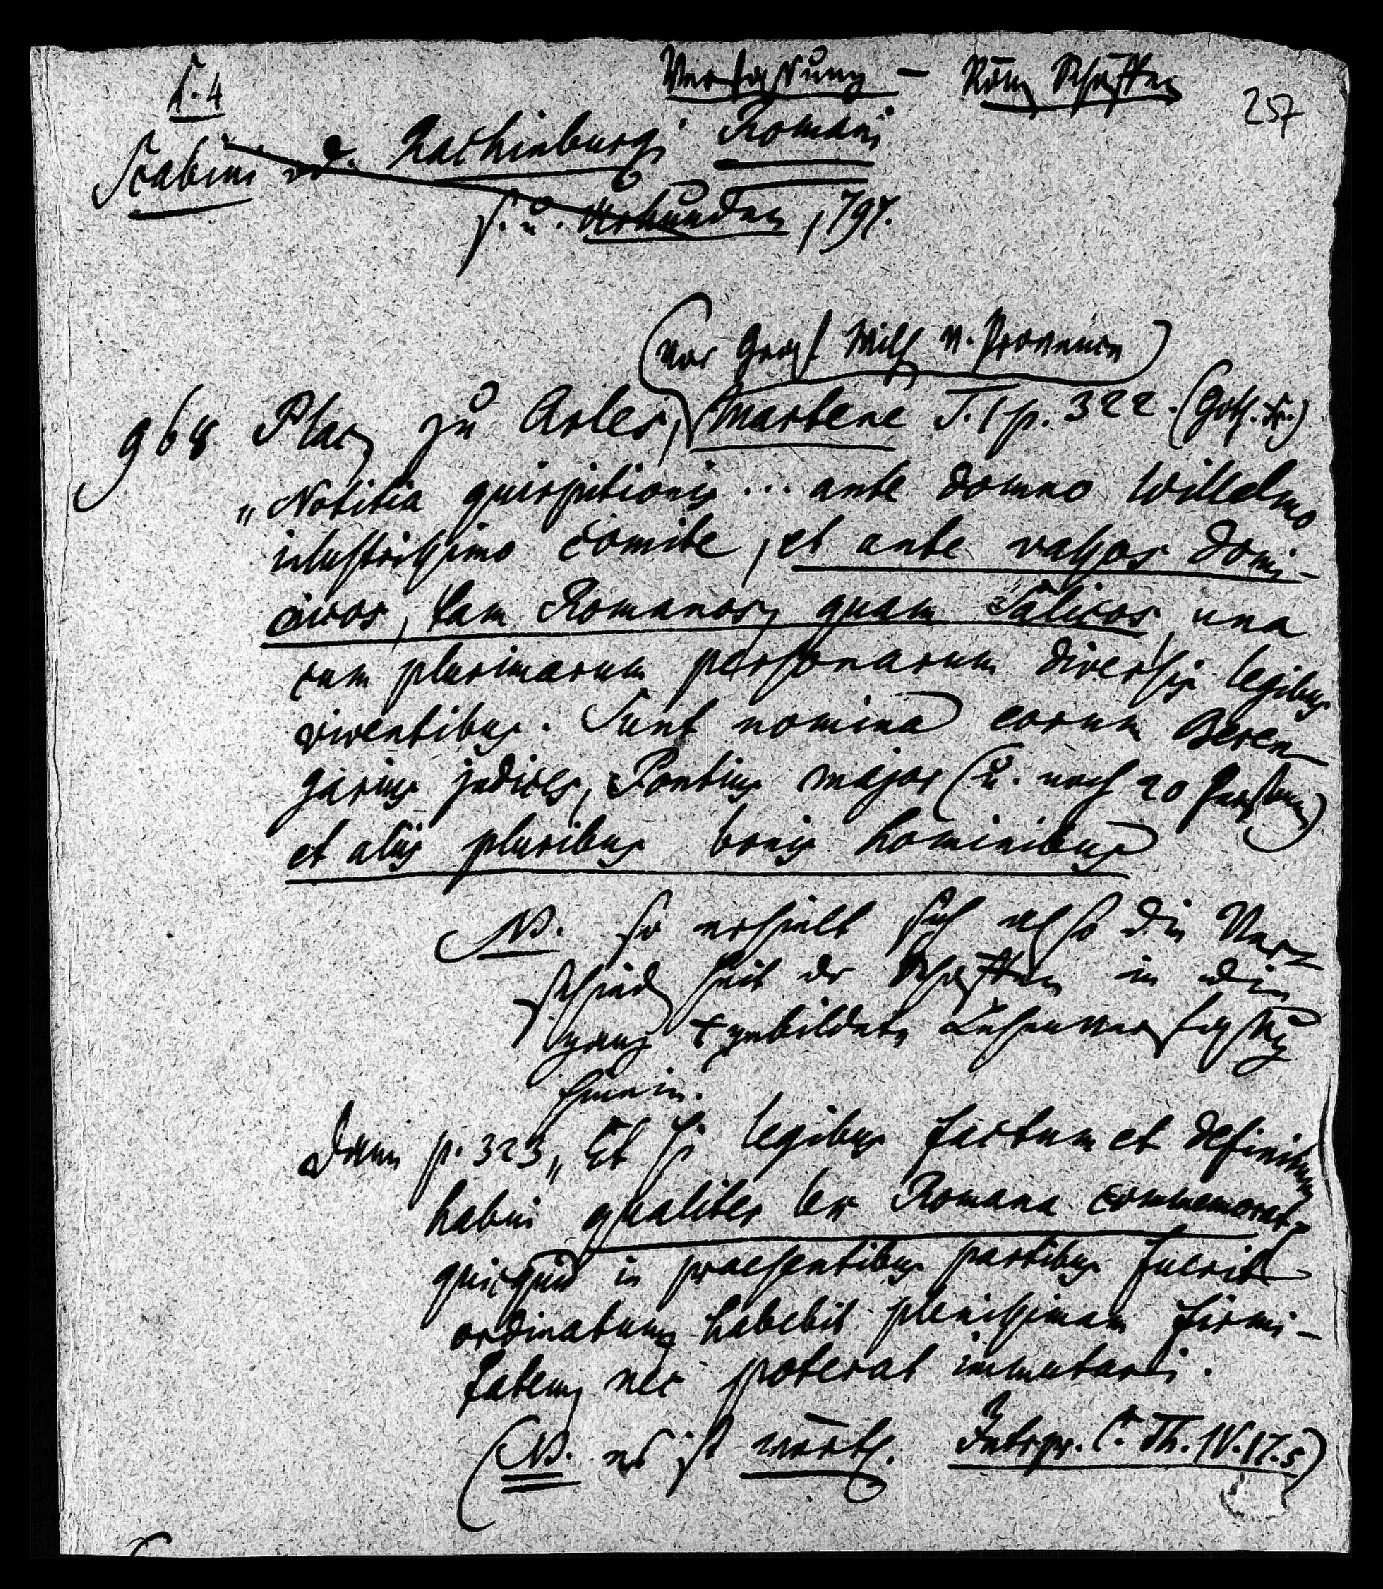 K. 4
Verfassung – Röm Schöffen
257
Scabini od. Rachinburgi Romani
s. u. Urkunden, 797.
(vor Graf Wilh v. Provence)
968 Plac zu Arles, Martene T. I p. 322. (Goth. Fr.)
„Notitia guirpitionis ... ante domno Willelmo
inlustrissimo comite, et ante vassos domi-
nicos, tam Romanos quam Salicos, una
cum plurimarum personarum diversis legibus
viventibus. Sunt nomina eorum Beren
garius judices, Pontius major (u. noch 20 Personen)
et aliis pluribus bonis hominibus
NB. So erhielt sich also die Ver-
schiedenheit der Schöffen in die
ganz ausgebildete Lehenverfassung
hinein.
Dann p. 323 „Et si legibus factum et definitum
habui qualiter lex Romana commemorat,
quicquid in praesentibus partibus fuerit
ordinatum habebit plenissimam firmi-
tatem nec poterat immutari.
(NB. es ist wörtl. Interpr. C. Th. IV. 17. 5)